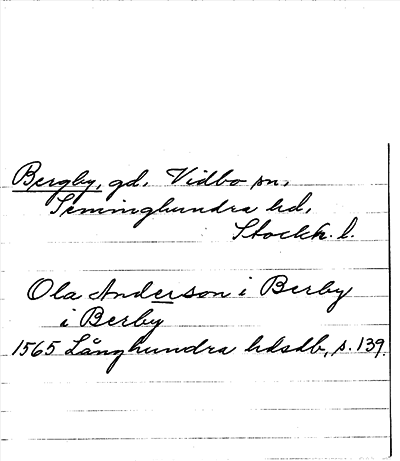 Bergby, gd, Vidbo sn,
Seminghundra hd,
Stockh. l.
Ola Anderson i Berby
i Berby
1565 Långhundra hdsdb, s. 139.